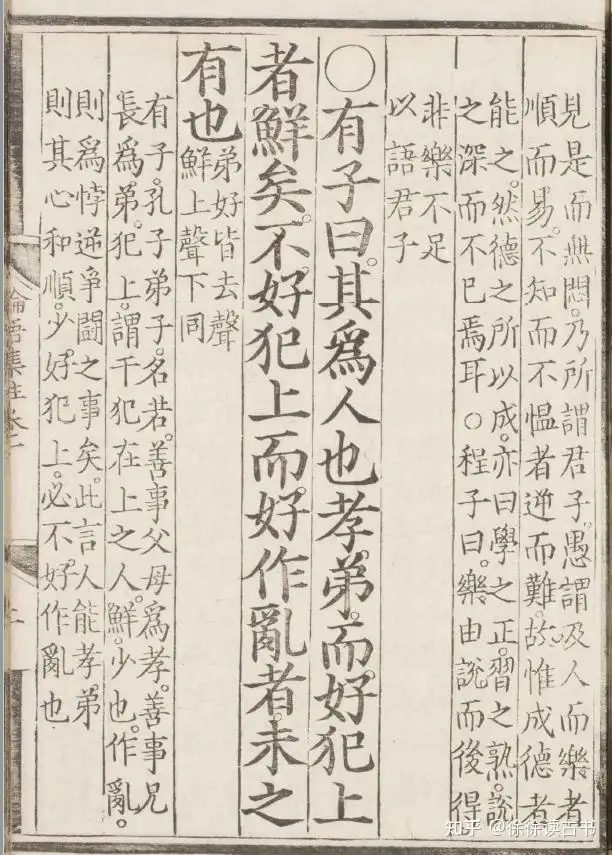 見是而無悶。乃所謂君子。愚謂及人而樂者
順而易。不知而不慍者逆而難。故惟成德者
能之。然德之所以成。亦曰學之正。習之熟。說
之深而不已焉耳○程子曰。樂由說而後得
非樂不足
以語君子
○有子曰。其爲人也孝弟。而好犯上
者鮮矣。不好犯上。而好作亂者。未之
有也
弟好皆去聲
鮮上聲下同
有子。孔子弟子。名若。善事父母爲孝。善事兄
長爲弟。犯上。謂干犯在上之人。鮮。少也。作亂。
則爲悖逆爭鬪之事矣。此言人能孝弟
則其心和順。少好犯上。必不好作亂也
論語集註卷一
知乎 @徐徐读古书